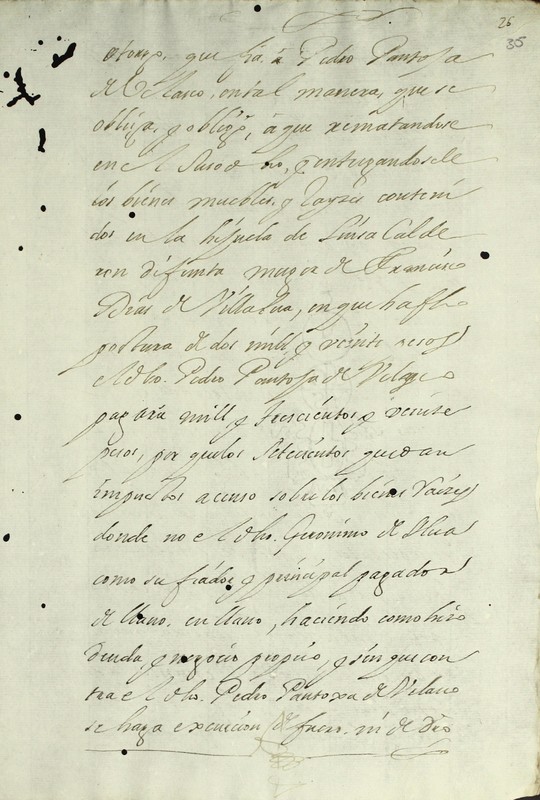 26
35
otorgo, que fia, a Pedro Pantoja
de Velasco, en tal manera, que se
obliga, y obligò, à que rematandose
en el suso dho, y entregandosele
los bienes muebles, y rayzes conteni
dos en la hijuela de Luisa Calde
ron difunta muger de Francisco
Dias de Villalua, en que ha fho
postura de dos mill, y veinte pesos
el dho. Pedro Pantoja de Velasco
pagàra mill, y trescientos, y veinte
pesos, por que los setecientos quedan
impuestos a censo sobre los bienes rayzes
donde no el dho. Geronimo de
como su fiador, y principal pagador
de llano, en llano, haciendo como hizo
deuda, y negocio propio, y sin que con
tra el dho. Pedro Pantoxa de Velasco
se haga excucion de fuero. ni de dro